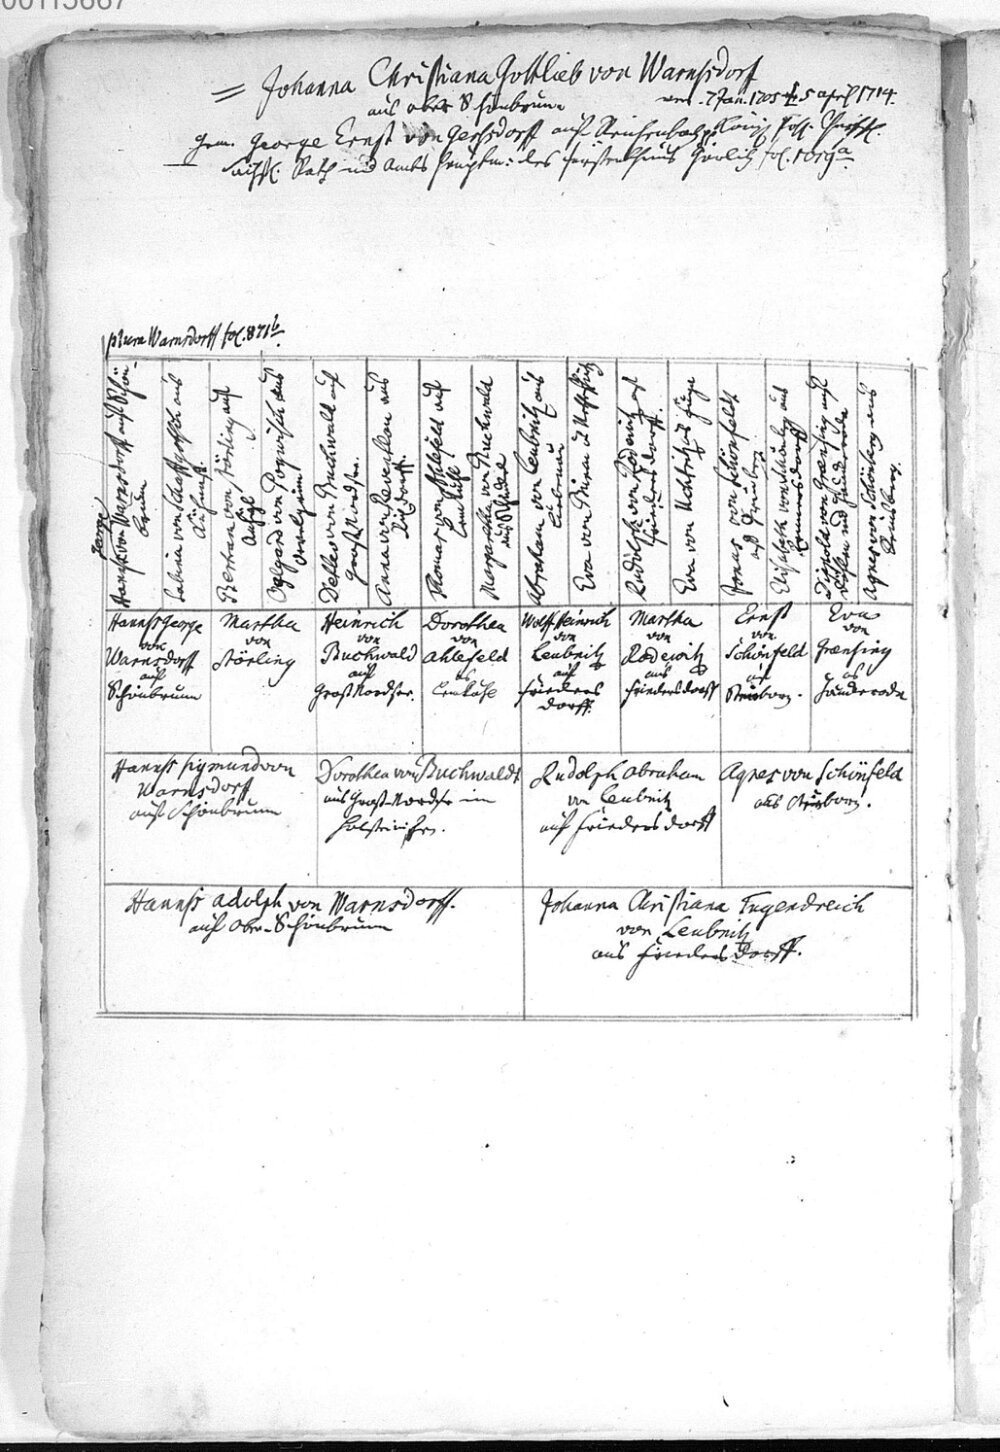 00115667
Johanna Christiana Gottlieb von Warnsdorf
aus ober Schönbrunn 7 Jan. 1705 5 april 1714.
Gem. George Ernst von Gersdorff auf Reichenbach Königl. Pohl. Churfl.
Sächsl. Rath und Amts Hauptm: des Fürstenthums Görlitz fol.
plura Warnsdorff fol. 871b.
George
Hannß von Warnsdorff auf Schön-
brunn
Sabina von Schaffgotsch aus
Bertram von Störling auf
Oelgard von Pogwisch aus
Detleff von Buchwald auf
Groß Nordsee.
Anna von Reventlau aus
Thomas von Ahlefeld auf
Lemkuhl
Margaretha von Buchwald
Abraham von Leubnitz aus
Eva von
Rudolph von Rodewitz auf
Friedersdorff.
Eva von Uchtritz aus
Jonas von Schönfeldt
Elisabeth von aus
von Grensing auf
Agnes von Schönberg aus
Hannß George
von
Warnsdorff
auf
Schönbrunn
Martha
von
Störling
Heinrich
von
Buchwald
auf
Groß Nordsee.
Dorothea
von
Ahlefeld
aus
Lemkuhl
Wolff Heinrich
von
Leubnitz
auf
Frieders
dorff.
Martha
von
Rodewitz
aus
Friedersdorff
Ernst
von
Schönfeld
auf
Eva
von
Grensing
aus
Hannß Sigmund von
Warnsdorff
auf Schönbrunn
Dorothea von Buchwaldt
aus Groß-Nordsee im
Holsteinischen.
Rudolph Abraham
von Leubnitz
auf Friedersdorff
Agnes von Schönfeld
aus
Hannß Adolph von Warnsdorff.
auf Ober-Schönbrunn
Johanna Christiana Tugendreich
von Leubnitz
aus Friedersdorff.